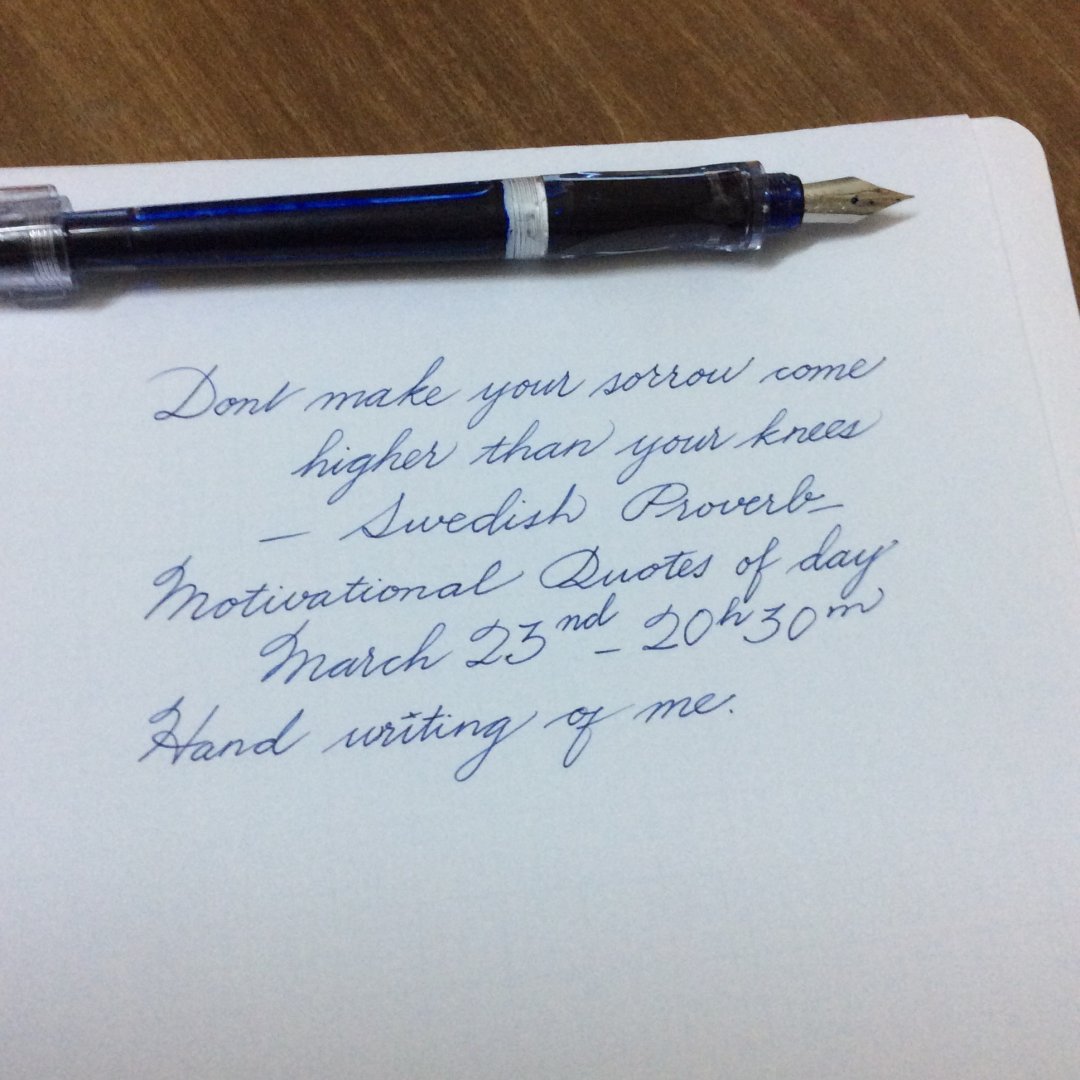 Dont make your sorrow come
higher than your knees
— Swedish Proverb —
Motivational Quotes of day
March 23nd – 20h30m
Hand writing of me.